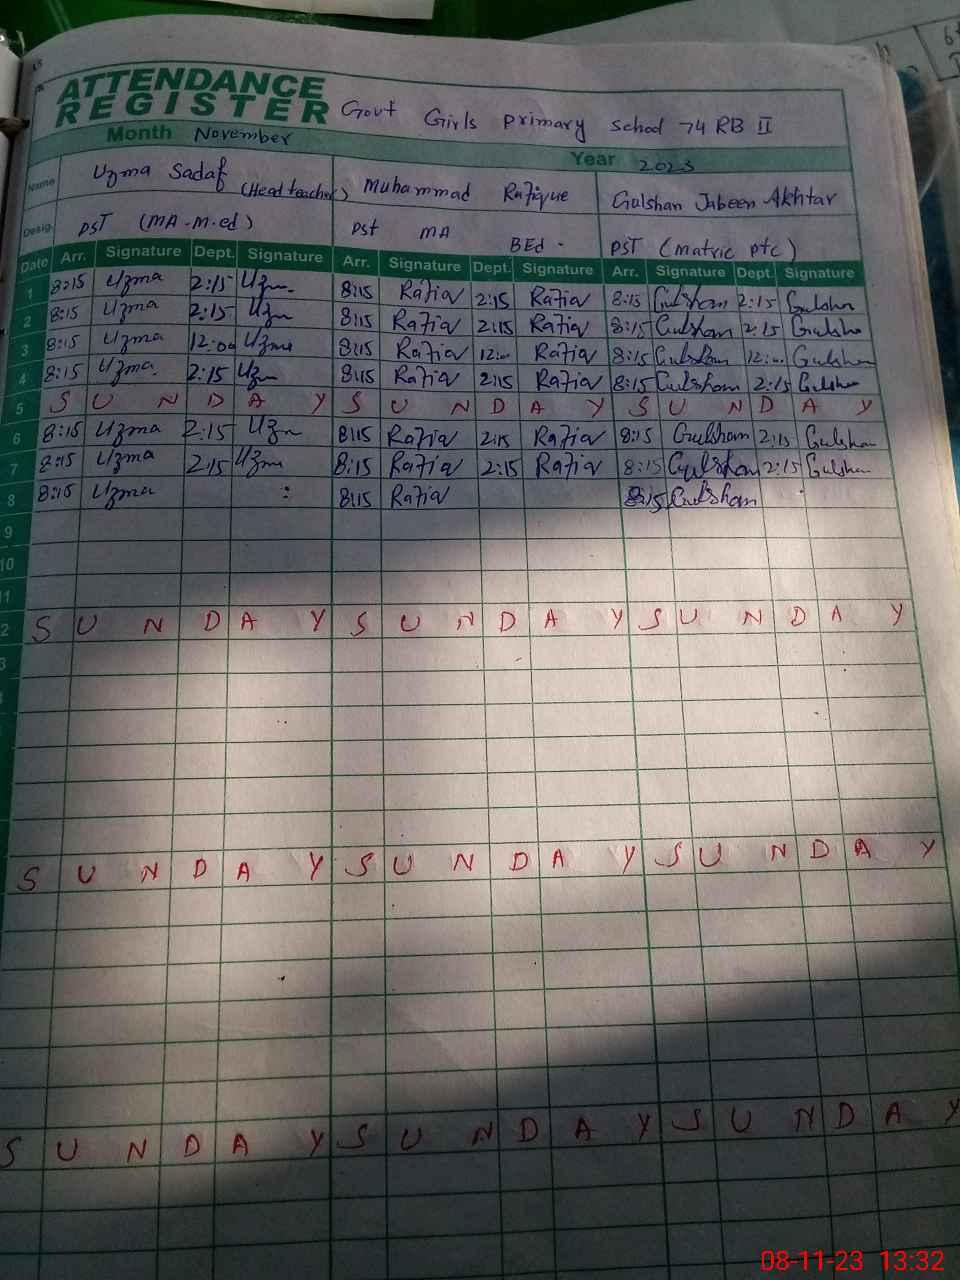 ATTENDANCE
REGISTER Govt Girls primary School 74 RB II
Month November Year 2023
Name Uzma Sadaf (Head teacher) Muhammad Rafique Gulshan Jabeen Akhtar
Desig. PST (MA-M.ed) Pst MA BEd - PST (Matric ptc)
Date Arr. Signature Dept. Signature Arr. Signature Dept. Signature Arr. Signature Dept. Signature
1 8:15 Uzma 2:15 Uzm 8:15 Rafiq 2:15 Rafiq 8:15 Gulshan 2:15 Gulshn
2 8:15 Uzma 2:15 Uzm 8:15 Rafiq 2:15 Rafiq 8:15 Gulsham 2:15 Gulsha
3 8:15 Uzma 12:00 Uzma 8:15 Rafiq 12:00 Rafiq 8:15 Gulsham 12:00 Gulsham
4 8:15 Uzma 2:15 Uzm 8:15 Rafiq 2:15 Rafiq 8:15 Gulsham 2:15 Gulsham
5 S U N D A Y S U N D A Y S U N D A Y
6 8:15 Uzma 2:15 Uzm 8:15 Rafiq 2:15 Rafiq 8:15 Gulsham 2:15 Gulsham
7 8:15 Uzma 2:15 Uzma 8:15 Rafiq 2:15 Rafiq 8:15 Gulsham 2:15 Gulsham
8 8:15 Uzma 8:15 Rafiq 8:15 Gulsham
9
10
11
2 S U N D A Y S U N D A Y S U N D A Y
3
S U N D A Y S U N D A Y S U N D A Y
S U N D A Y S U N D A Y S U N D A Y
08-11-23 13:32